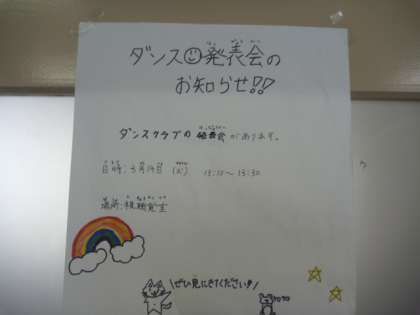 ダンス発表会の
お知らせ!!
ダンスクラブの発表会があります。
日時:3月14日(火) 13:10~13:30
場所:視聴覚室
ぜひ見にきてください!